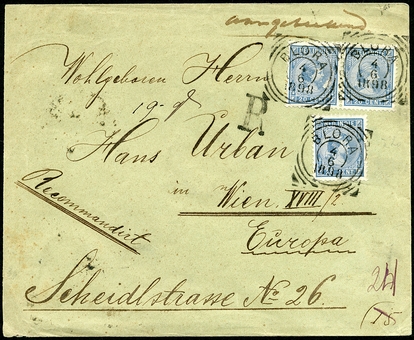 aangetekend
Wohlgeboren Herrn
BLORA
4
6
1898
BLORA
4
6
1898
20 CENT
R
Hans Urban
BLORA
4
6
1898
in
Wien XVIII/2
Recommandirt
Europa
Scheidlstrasse No 26.
15